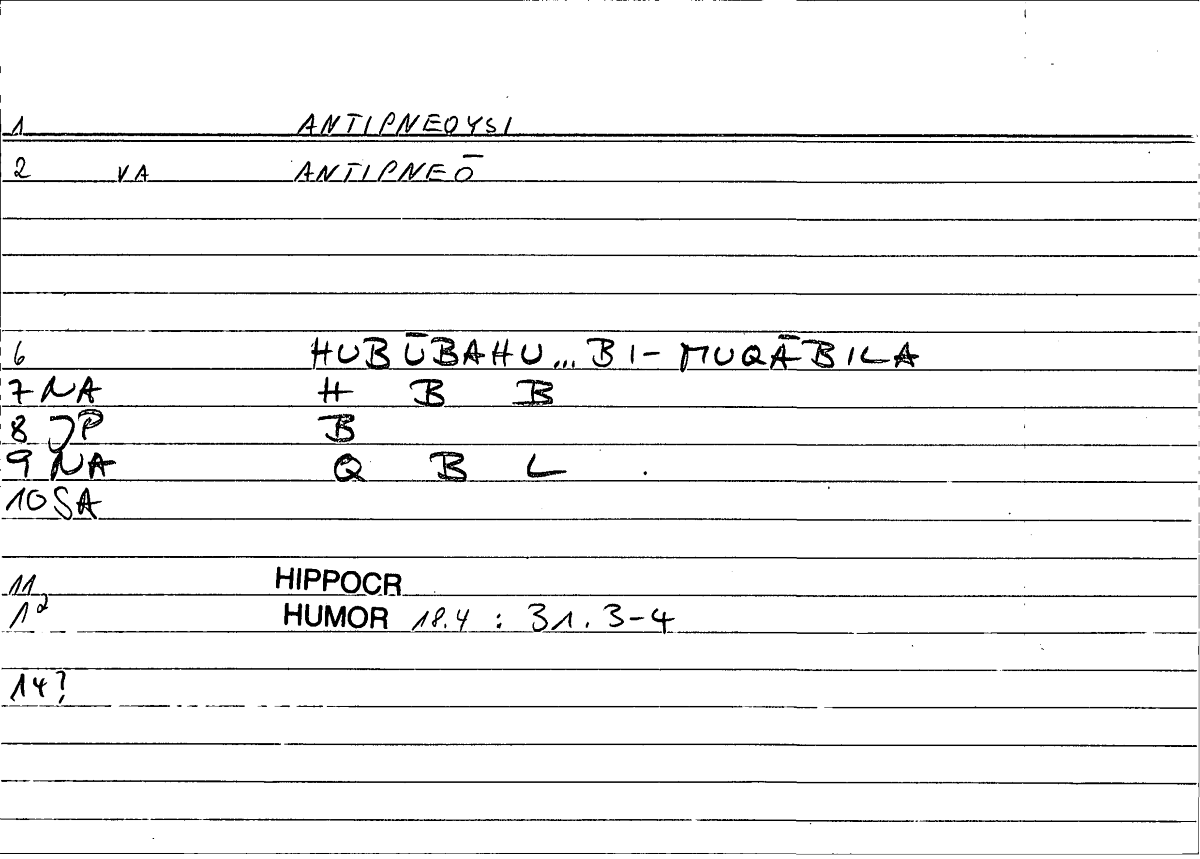 1 ANTIPNEOYSI
2 VA ANTIPNEŌ
6 HUBŪBAHU... BI- MUQĀBILA
7 NA H B B
8 JP B
9 NA Q B L .
10 SA
11 HIPPOCR
12 HUMOR 18.4 : 31. 3-4
14?